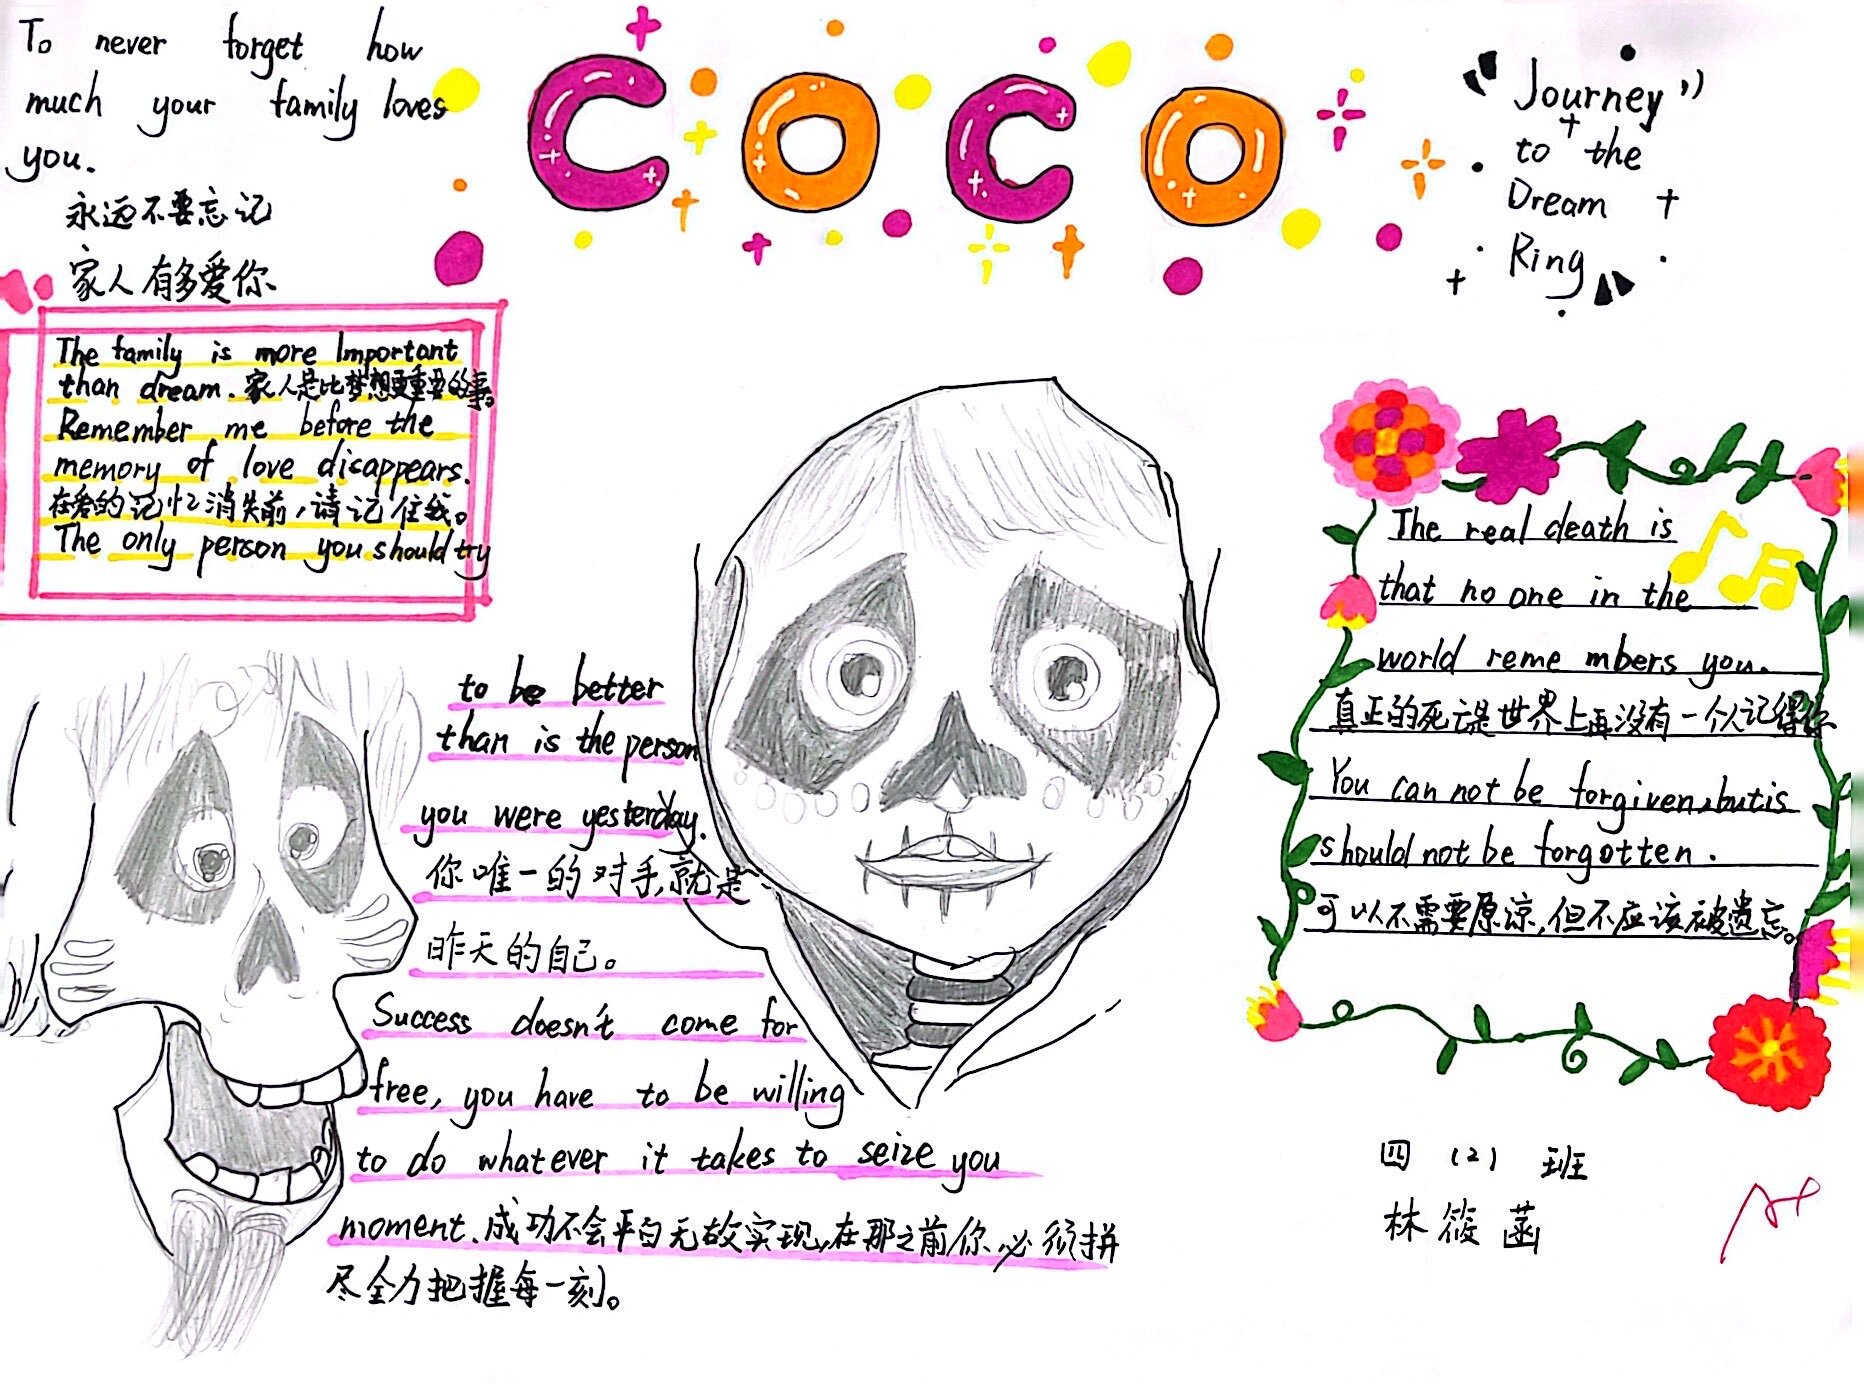 To never forget how
much your family loves
you.
永远不要忘记
家人有多爱你
COCO
"Journey"
to the
Dream
Ring
The family is more Important
than dream. 家人是比梦想更重要的事。
Remember me before the
memory of love disappears.
在爱的记忆消失前,请记住我。
The only person you should try
to be better
than is the person
you were yesterday.
你唯一的对手,就是
昨天的自己。
Success doesn't come for
free, you have to be willing
to do whatever it takes to seize you
moment. 成功不会平白无故实现,在那之前你必须拼
尽全力把握每一刻。
The real death is
that no one in the
world reme mbers you.
真正的死亡是世界上再没有一个人记得你
You can not be forgiven,butis
should not be forgotten.
可以不需要原谅,但不应该被遗忘。
四(2)班
林筱菡
A+